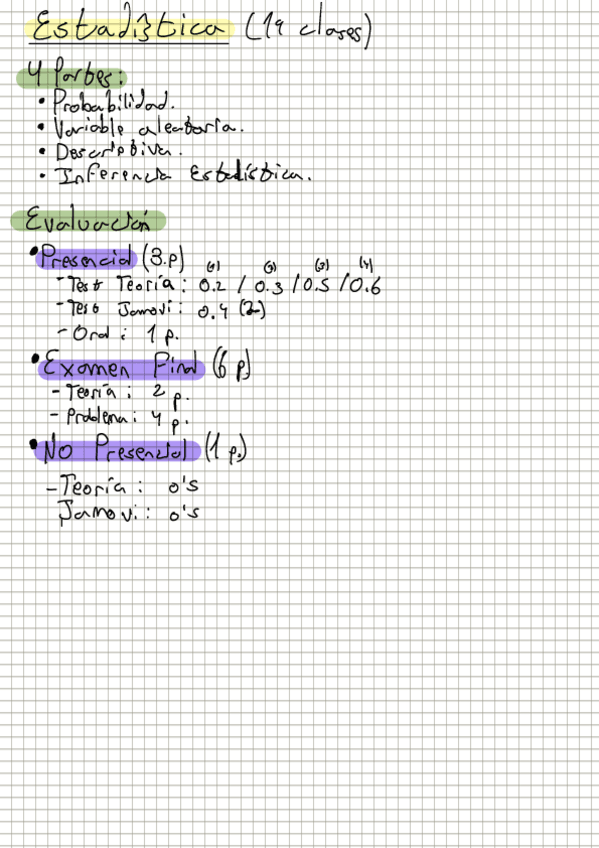 Estadística (19 clases)
4 Partes:
• Probabilidad.
• Variable aleatoria.
• Descriptiva.
• Inferencia Estadística.
Evaluación
• Presencial (3.p)
(1) (2) (3) (4)
- Test Teoría: 0.2 / 0.3 / 0.5 / 0.6
- Test Jamovi: 0.4 (2)
- Oral: 1 p.
• Examen Final (6 p)
- Teoría: 2 p.
- Problema: 4 p.
• No Presencial (1 p.)
- Teoría: 0's
Jamovi: 0's